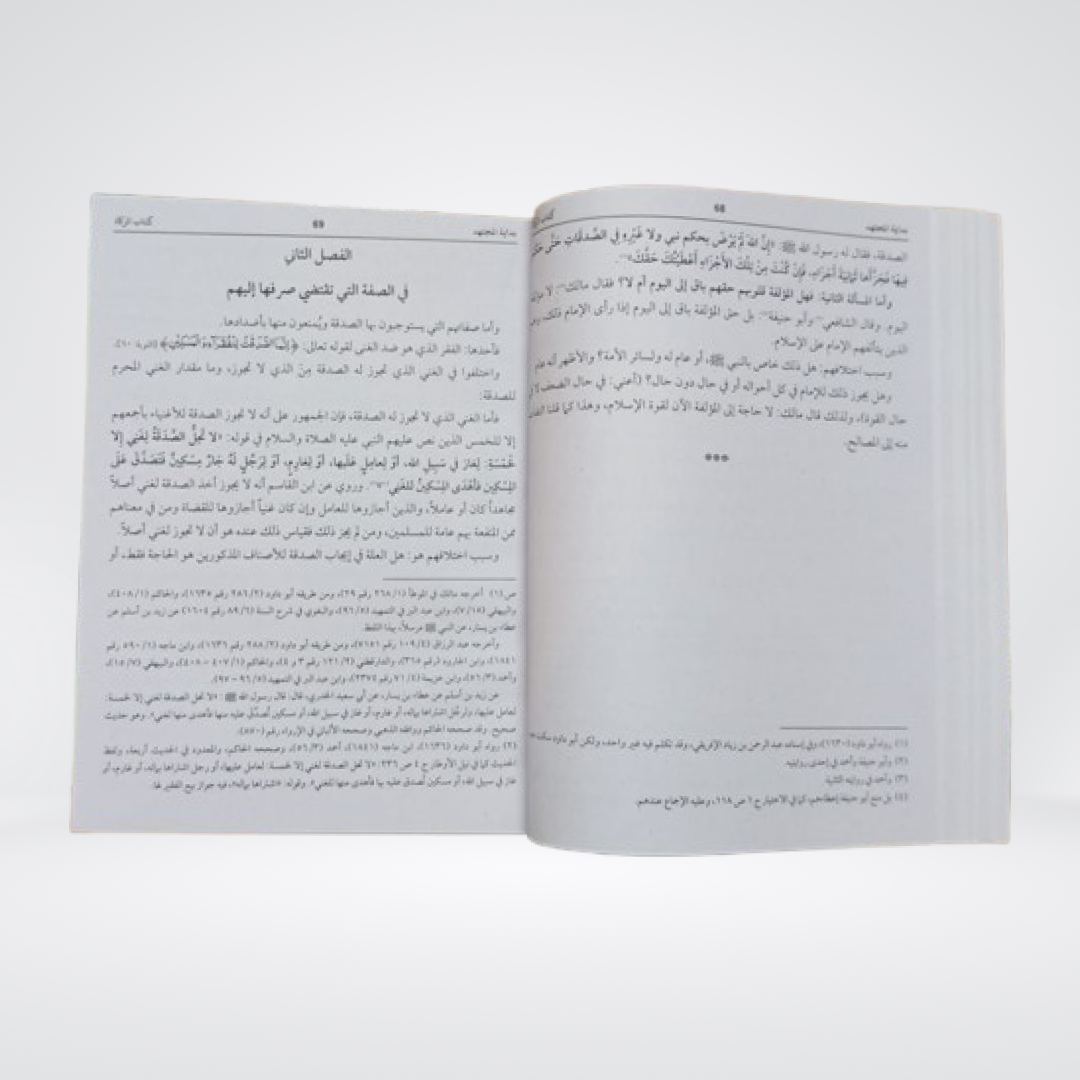 بداية المجتهد 68 كتاب
الصدقة، فقال له رسول الله ﷺ: «إِنَّ اللهَ لَمْ يَرْضَ بحكم نبي ولا غَيْرِهِ فِي الصَّدَقَاتِ حَتَّى
فِيهَا فَجَزَّأَهَا ثَمانِيَةَ أَجْزَاءٍ، فَإِنْ كُنْتَ مِنْ تِلْكَ الأَجْزَاءِ أَعْطَيْتُكَ حَقَّكَ»(١).
وأما المسألة الثانية: فهل المؤلفة قلوبهم حقهم باق إلى اليوم أم لا؟ فقال مالك(٢): لا
اليوم. وقال الشافعي(٣) وأبو حنيفة(٤): بل حق المؤلفة باق إلى اليوم إذا رأى الإمام ذلك،
الذين يتألفهم الإمام على الإسلام.
وسبب اختلافهم: هل ذلك خاص بالنبي ﷺ، أو عام له ولسائر الأمة؟ والأظهر أنه عام
وهل يجوز ذلك للإمام في كل أحواله أو في حال دون حال؟ (أعني: في حال الضعف لا
حال القوة)، ولذلك قال مالك: لا حاجة إلى المؤلفة الآن لقوة الإسلام، وهذا كما قلنا
منه إلى المصالح.
***
(١) رواه أبو داود (١٦٣٠)، وفي إسناده عبد الرحمن بن زياد الإفريقي، وقد تكلم فيه غير واحد، ولكن أبو داود سكت
(٢) وأبو حنيفة وأحمد في إحدى روايتيه.
(٣) وأحمد في روايته الثانية.
(٤) بل منع أبو حنيفة إعطاءهم، كما في الاختيار ج ١ ص ١١٨، وعليه الإجماع عندهم.
بداية المجتهد 69 كتاب الزكاة
الفصل الثاني
في الصفة التي تقتضي صرفها إليهم
وأما صفاتهم التي يستوجبون بها الصدقة ويُمنعون منها بأضدادها.
فأحدها: الفقر الذي هو ضد الغنى لقوله تعالى: ﴿إِنَّمَا الصَّدَقَاتُ لِلْفُقَرَاءِ وَالْمَسَاكِينِ﴾ [التوبة: ٦٠].
واختلفوا في الغني الذي تجوز له الصدقة مِنَ الذي لا تجوز، وما مقدار الغنى المحرم
للصدقة.
فأما الغني الذي لا تجوز له الصدقة، فإن الجمهور على أنه لا تجوز الصدقة للأغنياء بأجمعهم
إلا للخمس الذين نص عليهم النبي عليه الصلاة والسلام في قوله: «لا تَحِلُّ الصَّدَقَةُ لِغَنِي إلَّا
لِخَمْسَةٍ: لِغَازٍ في سَبِيلِ الله، أَوْ لِعَامِلٍ عَلَيهَا، أَوْ لِغَارِمٍ، أَوْ لِرَجُلٍ لَهُ جَارٌ مِسْكِينٌ فَتَصَدَّقَ عَلَى
المِسْكِينِ فَأَهْدَى المِسْكِينُ للغَنِي». وروي عن ابن القاسم أنه لا يجوز أخذ الصدقة لغني أصلاً
مجاهداً كان أو عاملاً، والذين أجازوها للعامل وإن كان غنياً أجازوها للقضاة ومن في معناهم
ممن المنفعة بهم عامة للمسلمين، ومن لم يجز ذلك فقياس ذلك عنده هو أن لا تجوز لغني أصلاً.
وسبب اختلافهم هو: هل العلة في إيجاب الصدقة للأصناف المذكورين هو الحاجة فقط، أو
أخرجه مالك في الموطأ (١/ ٢٦٨ رقم ٢٩)، ومن طريقه أبو داود (٢/ ٢٨٦ رقم ١٦٣٥)، والحاكم (١/ ٤٠٨)،
والبيهقي (٧/١٥)، وابن عبد البر في التمهيد (٥/ ٩٦)، والبغوي في شرح السنة (٦/ ٨٩ رقم ١٦٠٤) عن زيد بن أسلم عن
عطاء بن يسار، عن النبي ﷺ مرسلاً، بهذا اللفظ.
وأخرجه عبد الرزاق (٤/ ١٠٩ رقم ٧١٥١)، ومن طريقه أبو داود (٢/ ٢٨٨ رقم ١٦٣٦)، وابن ماجه (١/ ٥٩٠ رقم
١٨٤١)، وابن الجارود (رقم ٣٦٥)، والدارقطني (٢/ ١٢١ رقم ٣ و ٤)، والحاكم (١/ ٤٠٧ – ٤٠٨)، والبيهقي (٧/ ١٥)،
وأحمد (٣/ ٥٦)، وابن خزيمة (٤/ ٧١ رقم ٢٣٧٤)، وابن عبد البر في التمهيد (٥/ ٩٦ – ٩٧).
عن زيد بن أسلم عن عطاء بن يسار، عن أبي سعيد الخدري، قال: قال رسول الله ﷺ: «لا تحل الصدقة لغني إلا لخمسة:
لعامل عليها، ولرجل اشتراها بماله، أو غارم، أو غاز في سبيل الله، أو مسكين تُصدِّق عليه منها فأهدى منها لغني». وهو حديث
صحيح. وقد صححه الحاكم ووافقه الذهبي وصححه الألباني في الإرواء رقم (٨٧٠).
(٢) رواه أبو داود (١٦٣٦)، ابن ماجه (١٨٤١)، أحمد (٣/ ٥٦)، وصححه الحاكم، والمعدود في الحديث أربعة، ولفظ
الحديث كما في نيل الأوطار ج ٤ ص ٢٣٦: «لا تحل الصدقة لغني إلا لخمسة: لعامل عليها، أو رجل اشتراها بماله، أو غارم، أو
غاز في سبيل الله، أو مسكين تُصدق عليه بها فأهدى منها للغني». وقوله: «اشتراها بماله»، فيه جواز بيع الفقير لها.